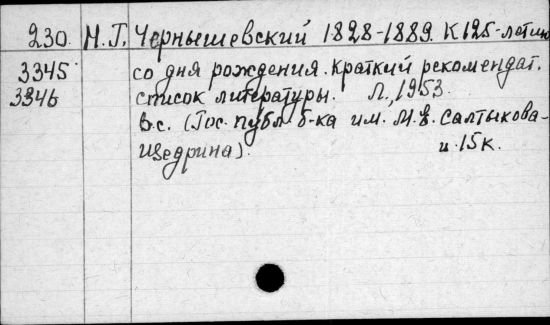 230. Н.Г. Чернышевский 1828-1889. К 125-летию
3345 со дня рождения. Краткий рекомендат.
3346 список литературы. Л., 1953.
8 с. (Гос. публ. б-ка им. М.Е. Салтыкова-
Щедрина). ц. 15 к.